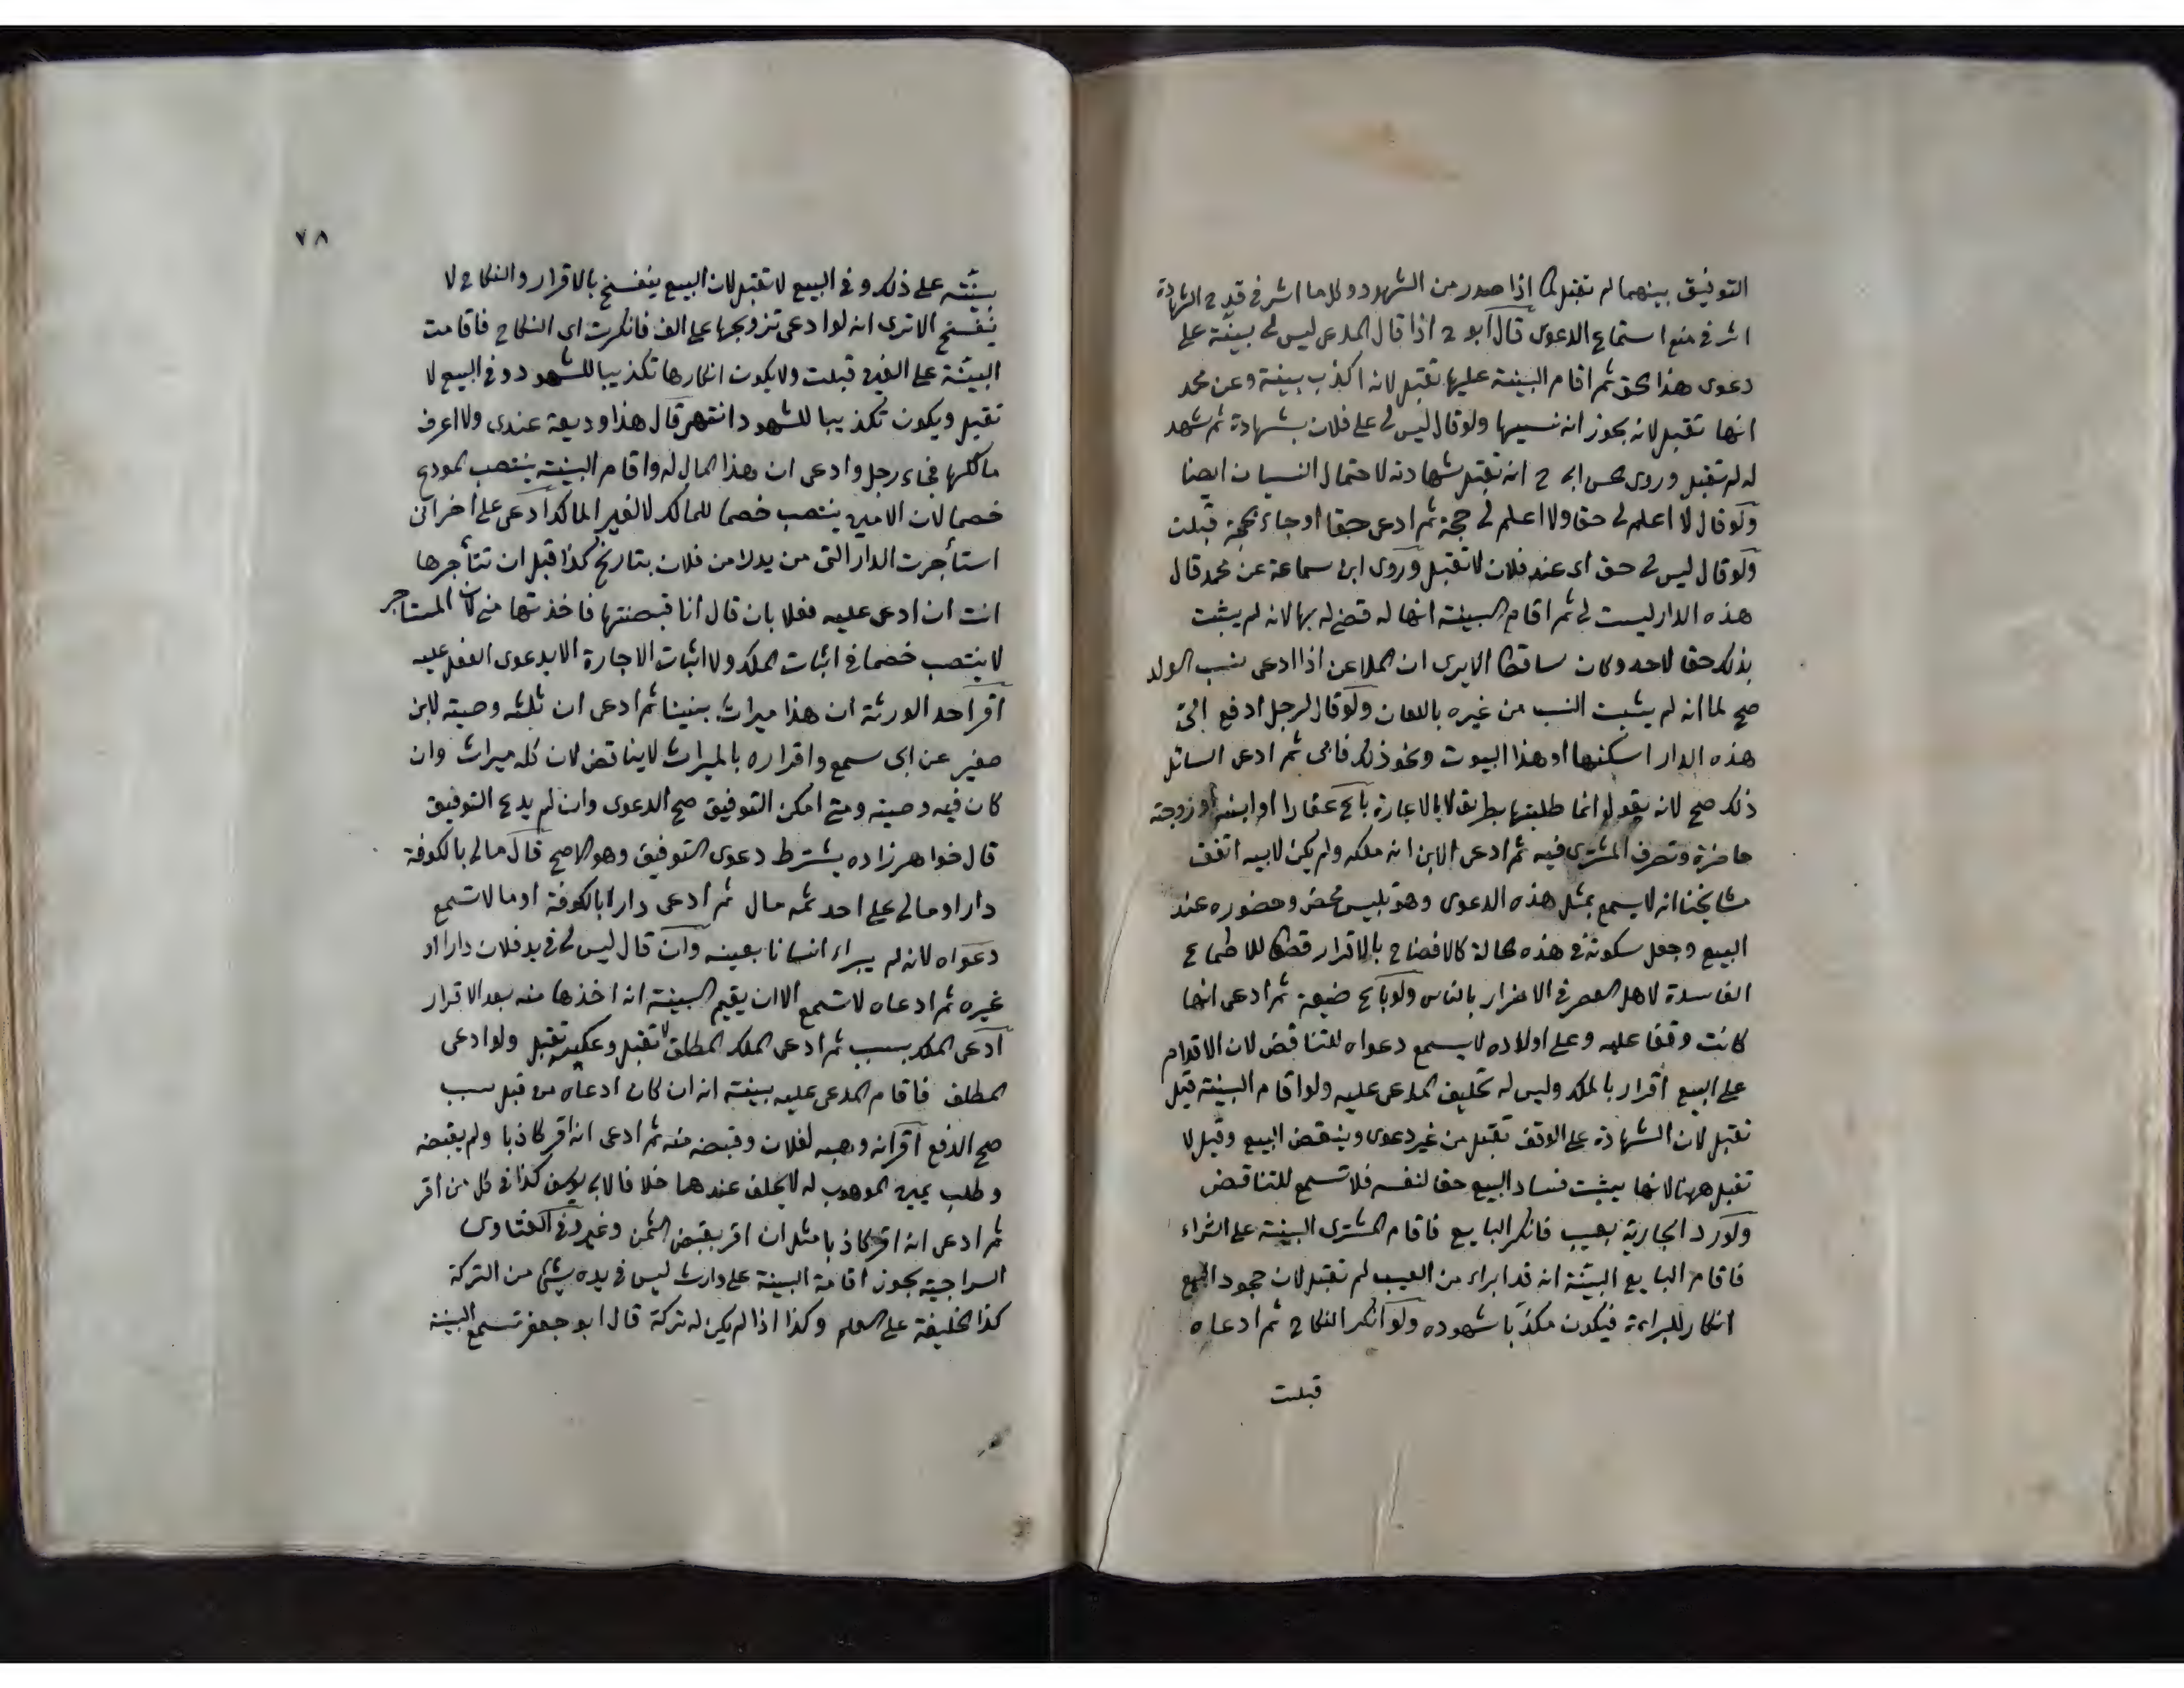 التوفيق بينهما لم تقبل كما اذا صدر من الشهود وكل ما اثر فى قدح الشهادة
اثر فى منع استماع الدعوى قال ابو ح اذا قال المدعى ليس لى بينة على
دعوى هذا الحق ثم اقام البينة عليها تقبل لانه اكذب بينة وعن محمد
انها تقبل لانه يجوز انه نسيها ولو قال ليس لى على فلان بشهادة ثم شهد
له لم تقبل وروى الحسن ابى ح انه تقبل شهادته لاحتمال النسيان ايضا
ولو قال لا اعلم لى حقا ولا اعلم لى حجة ثم ادعى حقا او جاء بحجة قبلت
ولو قال ليس لى حق اى عند فلان لا تقبل وروى ابن سماعة عن محمد قال
هذه الدار ليست لى ثم اقام البينة انها له قضى له بها لانه لم يثبت
بذلك حقا لاحد وكان ساقطا الا يرى ان الملاعن اذا ادعى نسب الولد
صح لما انه لم يثبت النسب من غيره باللعان ولو قال لرجل ادفع الىّ
هذه الدار اسكنها او هذا البيوت ونحو ذلك فابى ثم ادعى السائل
ذلك صح لانه يقول انما طلبتها بطريق لا بالاعارة باع عقارا او ابنه او زوجته
حاضرة وتصرف المشترى فيه ثم ادعى الابن انه ملكه ولم يكن لابيه اتفق
مشايخنا انه لا يسمع بمثل هذه الدعوى وهو تلبيس محض وحضوره عند
البيع وجعل سكوته فى هذه الحالة كالافضاح بالاقرار قطعا للاطماع
الفاسدة لاهل العصر فى الاضرار بالناس ولو باع ضيعة ثم ادعى انها
كانت وقفا عليه وعلى اولاده لا يسمع دعواه للتناقض لان الاقدام
على البيع اقرار بالملك وليس له تحليف المدعى عليه ولو اقام البينة قيل
تقبل لان الشهادة على الوقف تقبل من غير دعوى وينقض البيع وقيل لا
تقبل ههنا لانها يثبت فساد البيع حقا لنفسه فلا تسمع للتناقض
ولو رد الجارية بعيب فانكر البايع فاقام المشترى البينة على الشراء
فاقام البايع البينة انه قد ابراء من العيب لم تقبل لان جحود البيع
انكار للبراءة فيكون مكذبا شهوده ولو انكر النكاح ثم ادعاه
قبلت
٧٨
بينته على ذلك وفى البيع لا تقبل لان البيع ينفسخ بالاقرار والنكاح لا
ينفسخ الا ترى انه لو ادعى تزويجها على الف فانكرت اى النكاح فاقامت
البينة على الفين قبلت ولا يكون انكارها تكذيبا للشهود وفى البيع لا
تقبل ويكون تكذيبا للشهود انتهى قال هذا وديعة عندى ولا اعرف
مالكها فجاء رجل وادعى ان هذا المال له واقام البينة ينتصب المودع
خصما لان الامين ينتصب خصما للمالك لا لغير المالك ادعى على اخر انى
استأجرت الدار التى من يدك من فلان بتاريخ كذا قبل ان تتأجرها
انت ان ادعى عليه فعلا بان قال انا قبضتها فاخذتها منى كان المستاجر
لا ينتصب خصما فى اثبات الملك ولا اثبات الاجارة الا بدعوى الفعل عليه
اقر احد الورثة ان هذا ميراث بيننا ثم ادعى ان ثلثه وصية لابن
صغير عن ابى سمع واقراره بالميراث لا يناقض لان كله ميراث وان
كان فيه وصية ومتى امكن التوفيق صح الدعوى وان لم يدع التوفيق
قال خواهرزاده يشترط دعوى التوفيق وهو الاصح قال مالى بالكوفة
دار او مالى على احد ثمه مال ثم ادعى دارا بالكوفة او مالا تسمع
دعواه لانه لم يبراء انسانا بعينه وان قال ليس لى فى يد فلان دارا او
غيره ثم ادعاه لا تسمع الا ان يقيم البينة انه اخذها منه بعد الاقرار
ادعى الملك بسبب ثم ادعى الملك المطلق لا تقبل وعكسه تقبل ولو ادعى
المطلق فاقام المدعى عليه بينة انه ان كان ادعاه من قبل سبب
صح الدفع اقر انه وهبه لفلان وقبضه منه ثم ادعى انه اقر كاذبا ولم يقبضه
وطلب يمين الموهوب له لا يحلف عندهما خلافا لابى يوسف كذا فى كل من اقر
ثم ادعى انه اقر كاذبا مثل ان اقر بقبض الثمن وغيره فى الفتاوى
السراجية يجوز اقامة البينة على وارث ليس فى يده شئ من التركة
كذا الخليفة على العلم وكذا اذا لم يكن له تركة قال ابو جعفر تسمع البينة